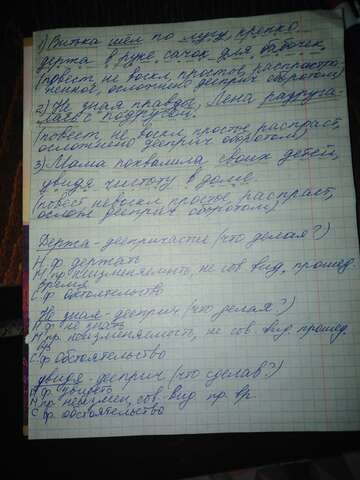 1) Витька шёл по лугу, крепко
держа в руке сачок для бабочек.
(повест, не воскл, простое, распростра-
ненное, осложнено дееприч оборотом)
2) Не зная правды, Лена разруга-
лась с подругой.
(повест, не воскл, простое, распраст,
осложнено дееприч оборотом)
3) Мама похвалила своих детей,
увидя чистоту в доме.
(повест, невоскл, простое, распраст,
ослож дееприч оборотом)
Держа - деепричастие (что делая?)
Н.ф. держать
М.пр. неизменяемость, не сов. вид, прошед.
время
С.ф. обстоятельство
Не зная - дееприч (что делая?)
Н.ф. не знать
М.пр. неизменяемость, не сов. вид прошед.
вр
С.ф обстоятельство
увидя - дееприч (что сделав?)
Н.ф. увидеть
М.пр. неизмен, сов. вид пр. вр.
С.ф. обстоятельство